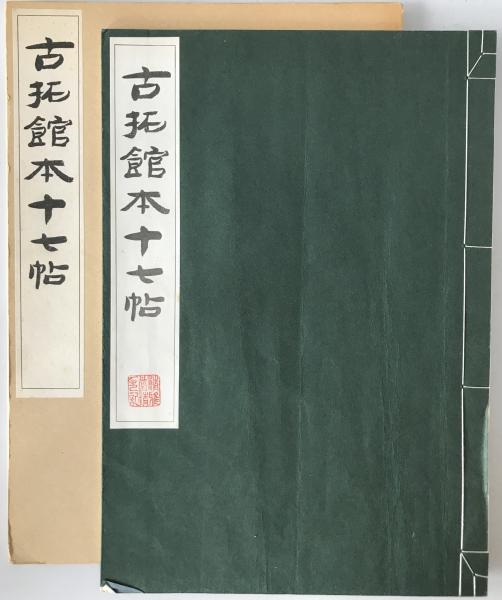 古拓館本十七帖
古拓館本十七帖